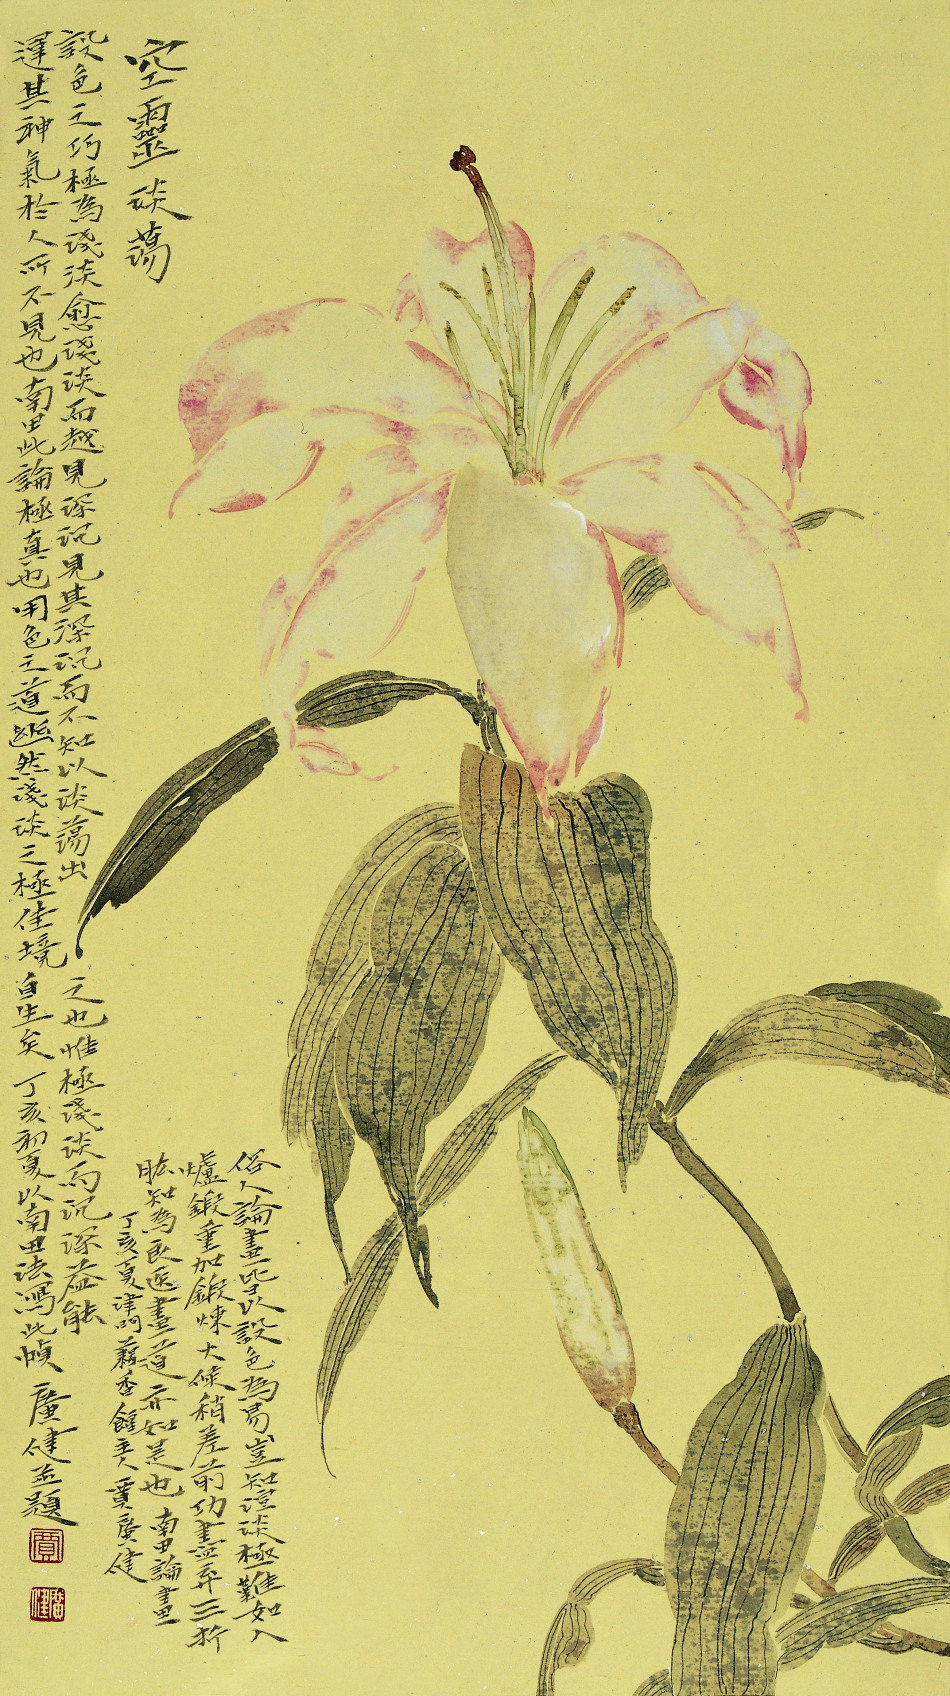 空靈淡蕩
設色之巧極為淺淡愈淺淡而越見深沉見其深沉而不知以淡蕩出之也惟極淺淡而沉深益能
運其神氣於人所不見也南田此論極真也用色之道幽然淺淡之極佳境自生矣丁亥初夏以南田法寫此幀廣健並題
賈
廣健
俗人論畫皆以設色為易豈知澄淡極難如入
爐鍛重加鍛煉火候稍差前功盡棄三折
肱知為良医畫道亦如是也南田論畫
丁亥夏津門藕香館主人賈廣健